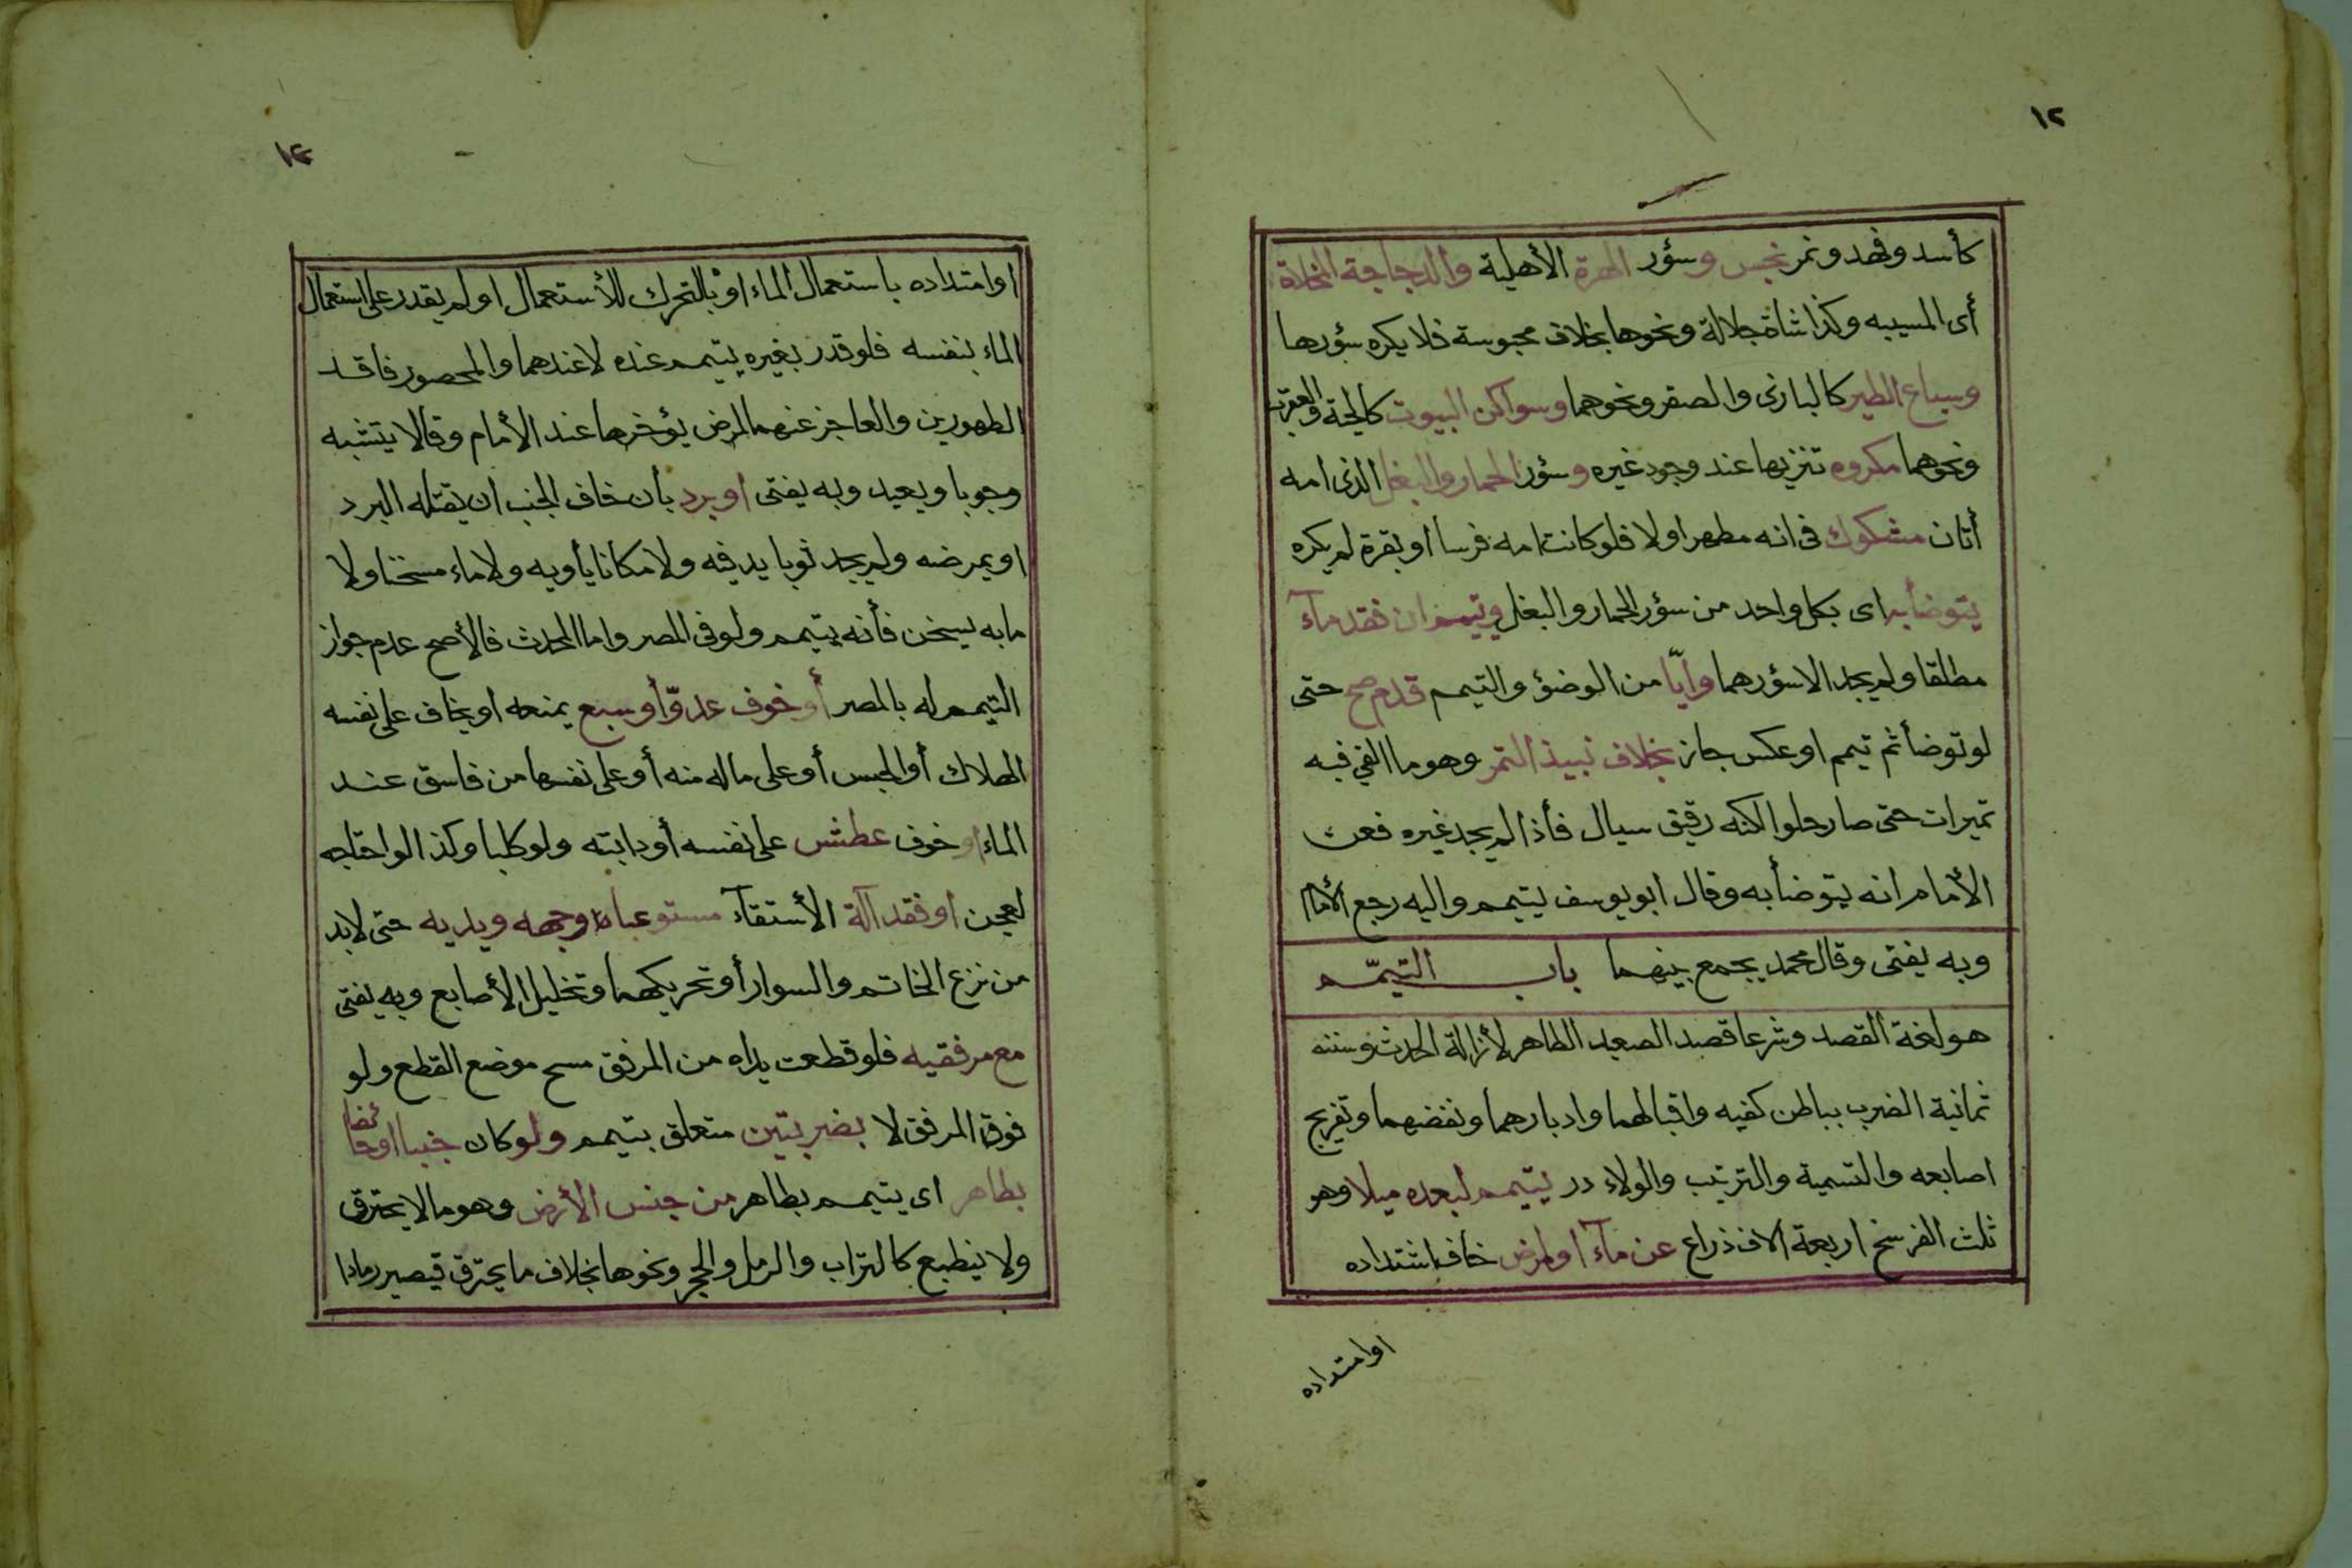 ١٢
كأسد وفهد ونمر نجس وسؤر الهرة الأهلية والدجاجة المخلاة
أى المسيبه وكذا شاة جلالة ونحوها بخلاف محبوسة فلا يكره سؤرها
وسباع الطير كالبازى والصقر ونحوهما وسواكن البيوت كالحية والعقرب
ونحوهما مكروه تنزيها عند وجود غيره وسؤر الحمار والبغل الذى امه
أتان مشكوك فى انه مطهر اولا فلو كانت امه فرسا أو بقرة لم يكره
يتوضأ به اى بكل واحد من سؤر الحمار والبغل ويتيمم ان فقد مآء
مطلقا ولم يجد الا سؤرهما وايّا من الوضؤ والتيمم قدم صح حتى
لو توضأ ثم تيمم او عكس جاز بخلاف نبيذ التمر وهو ما القي فيه
تميرات حتى صار حلوا لكنه رقيق سيال فأذا لم يجد غيره فعن
الأمام انه يتوضأ به وقال ابو يوسف يتيمم واليه رجع الأمام
وبه يفتى وقال محمد يجمع بينهما باب التيمّم
هو لغة القصد وشرعا قصد الصعيد الطاهر لأزالة الحدث وسننه
ثمانية الضرب بباطن كفيه واقبالهما وادبارهما ونفضهما وتفريج
اصابعه والتسمية والترتيب والولاء در يتيمم لبعده ميلا وهو
ثلث الفرسخ اربعة الاف ذراع عن مآء او لمرض خاف اشتداده
اوامتداده
١٣
اوامتداده باستعمال الماء او بالتحرك للأستعمال او لم يقدر على استعمال
الماء بنفسه فلو قدر بغيره يتيمم عنده لا عندهما والمحصور فاقد
الطهورين والعاجز عنهما لمرض يؤخرها عند الأمام وقالا يتشبه
وجوبا ويعيد وبه يفتى او برد بأن خاف الجنب ان يقتله البرد
او يمرضه ولم يجد ثوبا يدفيه ولا مكانا يأويه ولا ماء مسخنا ولا
مابه يسخن فأنه يتيمم ولو فى المصر واما المحدث فالأصح عدم جواز
التيمم له بالمصر أو خوف عدوّ أو سبع يمنعه او يخاف على نفسه
الهلاك أو الحبس أو على ماله منه أو على نفسها من فاسق عند
الماء او خوف عطش على نفسه أو دابته ولو كلبا وكذا لو احتاجه
لعجن او فقد آلة الأستقآء مستوعبا وجهه ويديه حتى لابد
من نزع الخاتم والسوار أو تحريكهما وتخليل الأصابع وبه يفتى
مع مرفقيه فلو قطعت يداه من المرفق مسح موضع القطع ولو
فوق المرفق لا بضربتين متعلق بتيمم ولو كان جنبا او حائضا
بطاهر اى يتيمم بطاهر من جنس الأرض وهو مالا يحترق
ولا ينطبع كالتراب والرمل والحجر ونحوها بخلاف ما يحترق فيصير رمادا